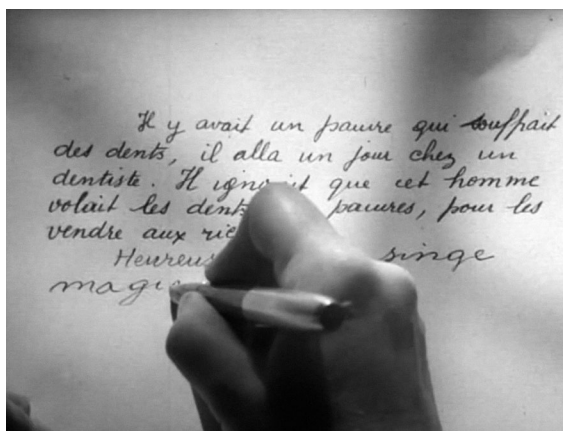 Il y avait un pauvre qui souffrait
des dents, il alla un jour chez un
dentiste. Il ignorait que cet homme
volait les dents pauvres, pour les
vendre aux
singe